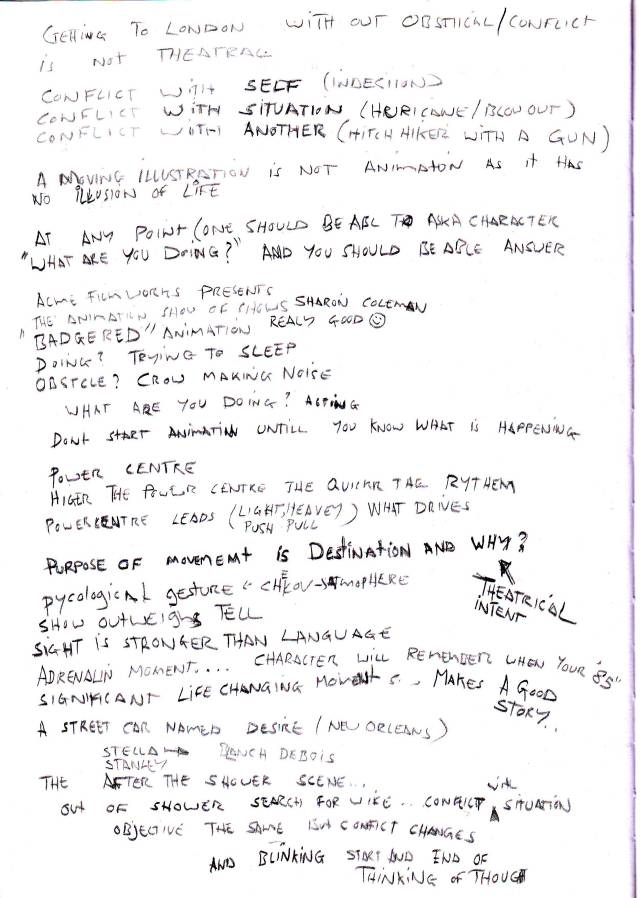 GETTING TO LONDON WITH OUT OBSTICAL/CONFLICT
IS NOT THEATRAL
CONFLICT WITH SELF (INDESITION)
CONFLICT WITH SITUATION (HURICANE/BLOW OUT)
CONFLICT WITH ANOTHER (HITCH HIKER WITH A GUN)
A MOVING ILLUSTRATION IS NOT ANIMATON AS IT HAS
NO ILLUSION OF LIFE
AT ANY POINT (ONE SHOULD BE ABL TO ASK A CHARACTER
"WHAT ARE YOU DOING?" AND YOU SHOULD BE ABLE ANSWER
ACME FILMWORKS PRESENTS
THE ANIMATION SHOW OF SHOWS SHARON COLEMAN
"BADGERED" ANIMATION REALY GOOD ☺
DOING? TRYING TO SLEEP
OBSTCLE? CROW MAKING NOISE
WHAT ARE YOU DOING? ACTING
DONT START ANIMATIN UNTILL YOU KNOW WHAT IS HAPPENING
POWER CENTRE
HIGER THE POWER CENTRE THE QUICKR THE RYTHEM
POWER CENTRE LEADS (LIGHT, HEAVEY) WHAT DRIVES
PUSH PULL
PURPOSE OF MOVEMEMT IS DESTINATION AND WHY?
THEATRICAL
INTENT
PYCOLOGICAL GESTURE - CHEKOV - ATMOPHERE
SHOW OUTWEIGHS TELL
SIGHT IS STRONGER THAN LANGUAGE
ADRENALIN MOMENT.... CHARACTER WILL REMEMBER WHEN YOUR "85"
SIGNIFICANT LIFE CHANGING MOMENTS... MAKES A GOOD
STORY...
A STREET CAR NAMED DESIRE (NEW ORLEANS)
STELLA → BLANCH DEBOIS
STANLEY
THE AFTER THE SHOWER SCENE...
OUT OF SHOWER SEARCH FOR WIFE... CONFLICT WITH SITUATION
OBJECTIVE THE SAME BUT CONFICT CHANGES
AND BLINKING START AND END OF
THINKING OF THOUGHT